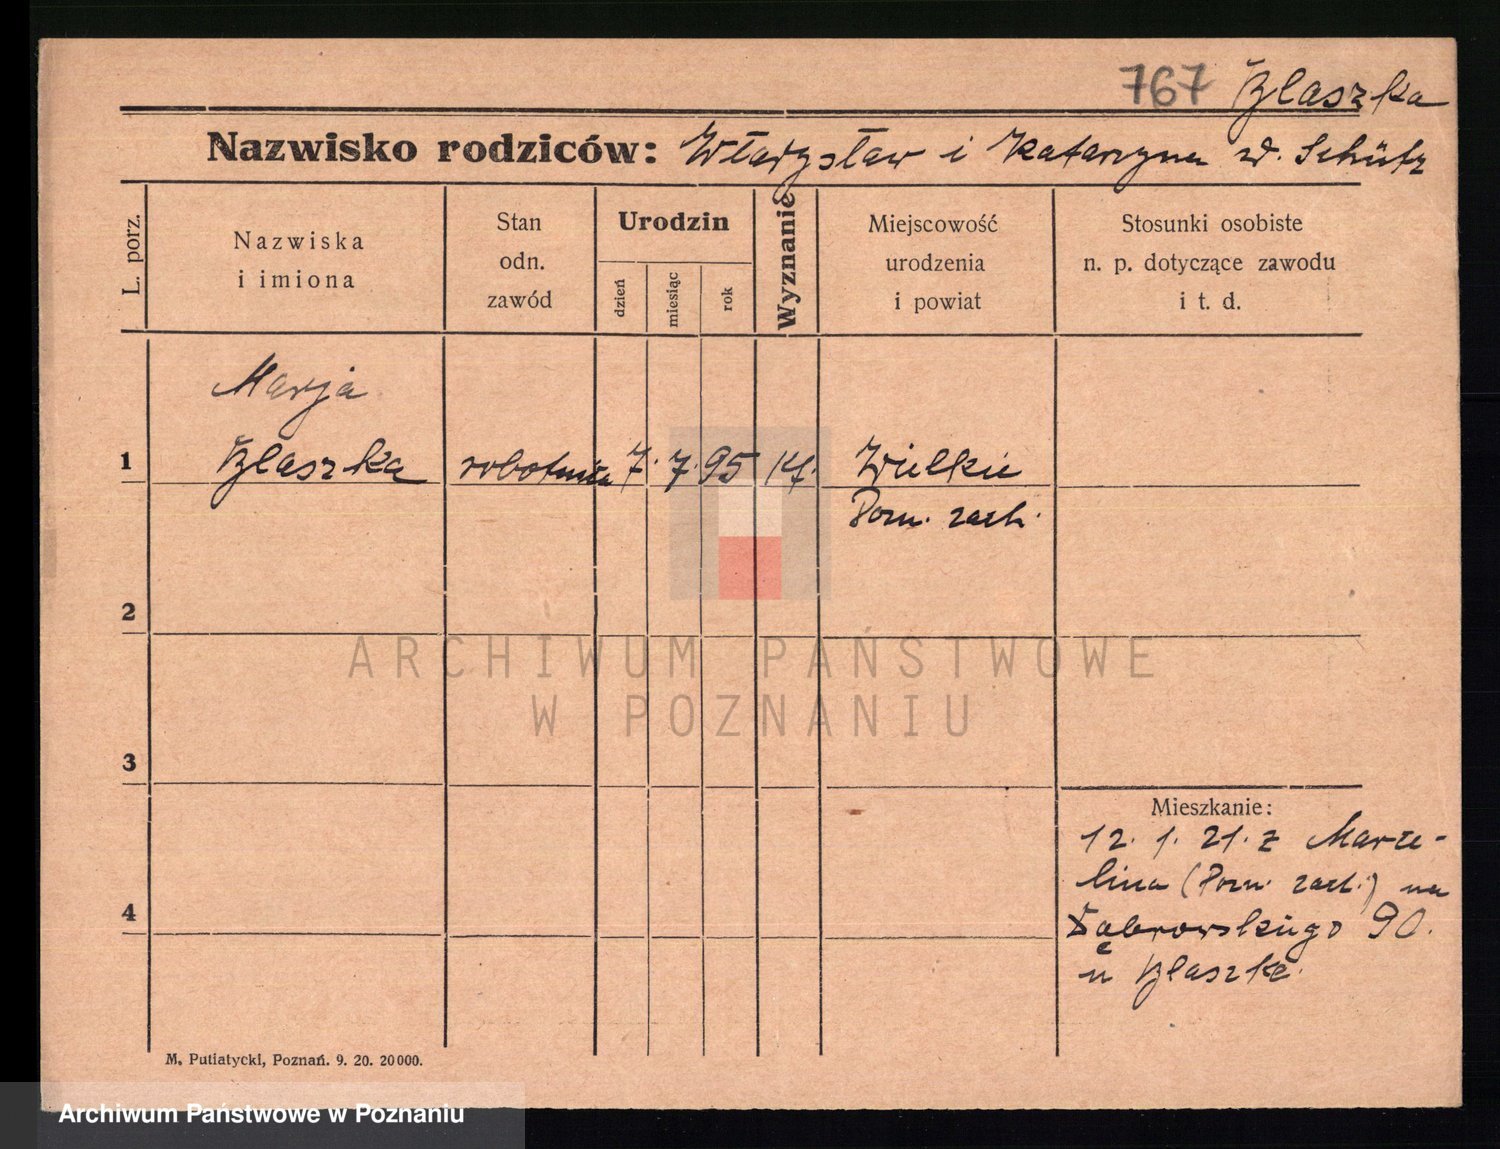 767 Błaszka
Nazwisko rodziców: Władysław i Katarzyna z d. Schütz
L. porz.
Nazwiska
i imiona
Stan
odn.
zawód
Urodzin
dzień
miesiąc
rok
Wyznanie
Miejscowość
urodzenia
i powiat
Stosunki osobiste
n. p. dotyczące zawodu
i t. d.
Marja
1 Błaszka robotnica 7. 7. 95 kf. Wielkie
Pozn. zach.
2
ARCHIWUM PAŃSTWOWE
W POZNANIU
3
Mieszkanie:
12. 1. 21. z Marce-
lina (Pozn. zach.) na
4 Dąbrowskiego 90.
u Błaszke.
M. Putiatycki, Poznań. 9. 20. 20000.
Archiwum Państwowe w Poznaniu